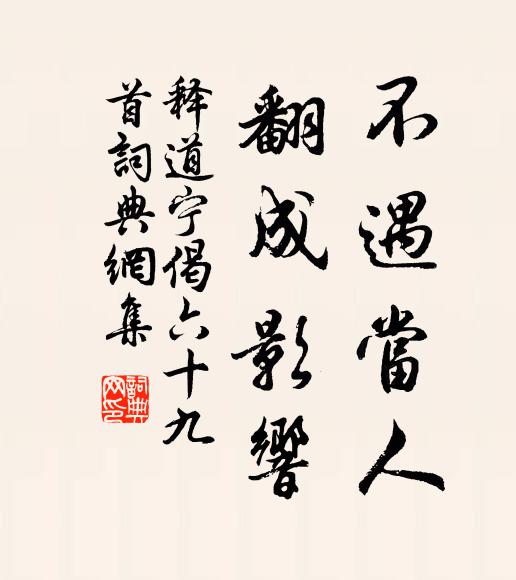 不遇當人
翻成影響
释道宁偈六十九
首詞典網集
詞典网印